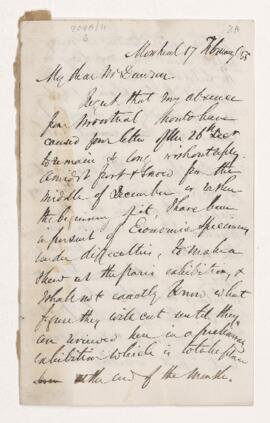 Montreal 17 February /55
My dear Mr Dawson
Regret that my absence
from Montreal should have
caused your letter of the 26th Decr
to remain so long without reply.
Amidst frost & snow from the
middle of December or rather
the beginning of it, I have been
in pursuit of Economic Specimens
under difficulties, to make a
show at the paris exhibition, &
I shall not exactly know what
figure they will cut until they
are reviewed here in a
exhibition which is to take place
at the end of the month.